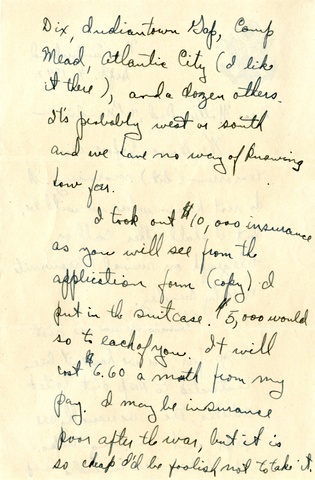 Dix, Indiantown Gap, Camp
Mead, Atlantic City (I like
it there), and a dozen others.
It's probably west or south
and we have no way of knowing
how far.
I took out $10,000 insurance
as you will see from the
application form (copy) I
put in the suitcase. $5,000 would
so to each of you. It will
cost $6.60 a month from my
pay. I may be insurance
poor after the war, but it is
so cheap I'd be foolish not to take it.